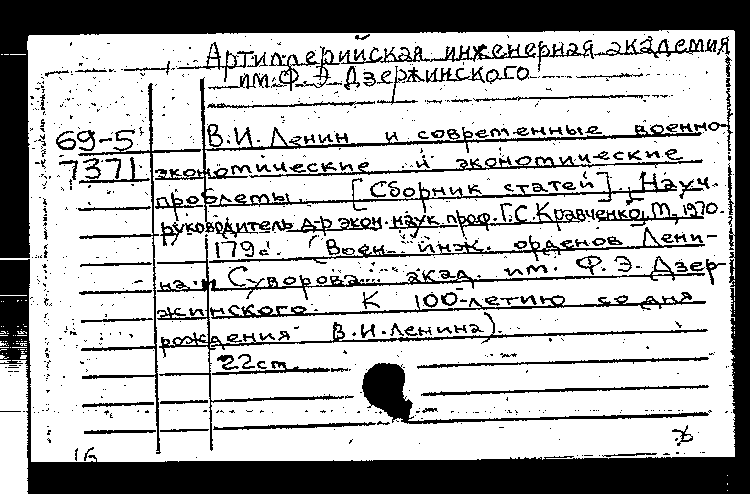 Артиллерийская инженерная академия
им. Ф. Э. Дзержинского
69-5 В.И. Ленин и современные военно-
7371 экономические и экономические
проблемы. [Сборник статей]. Науч.
руководитель д-р экон. наук проф. Г.С. Кравченко. М., 1970.
179с. (Воен. инж. орденов Лени-
на и Суворова акад. им. Ф. Э. Дзер-
жинского. К 100-летию со дня
рождения В.И. Ленина)
22см.
16